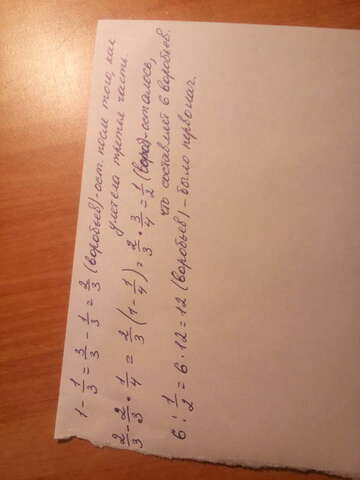 1 - 1/3 = 3/3 - 1/3 = 2/3 (воробьев)-ост. после того, как
улетела третья часть.
2/3 - 2/3 · 1/4 = 2/3 (1 - 1/4) = 2/3 · 3/4 = 1/2 (вороб)-осталось,
что составляет 6 воробьев.
6 : 1/2 = 6 · 12 = 12 (воробьев) - было первонач.